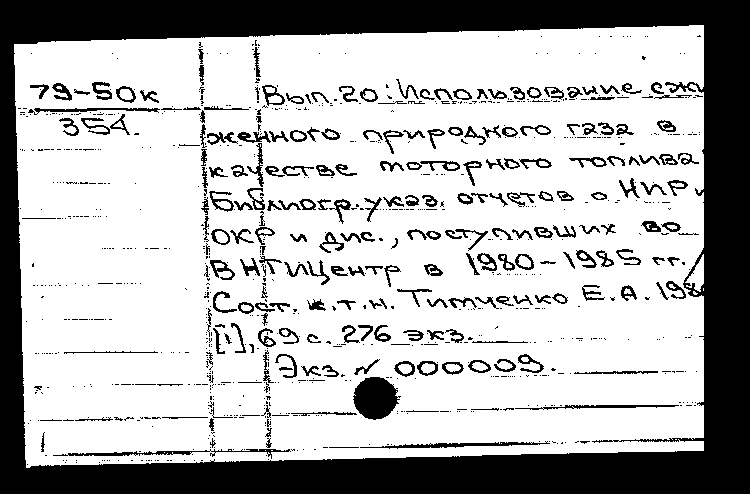 79-50к
354.
Вып.20: Использование сжи
женного природного газа в
качестве моторного топлива
Библиогр. указ. отчетов о НИР и
ОКР и дис., поступивших во
ВНТИЦентр в 1980-1985 гг./
Сост. к.т.н. Тимченко Е.А. 198
[1], 69 с. 276 экз.
Экз. № 000009.